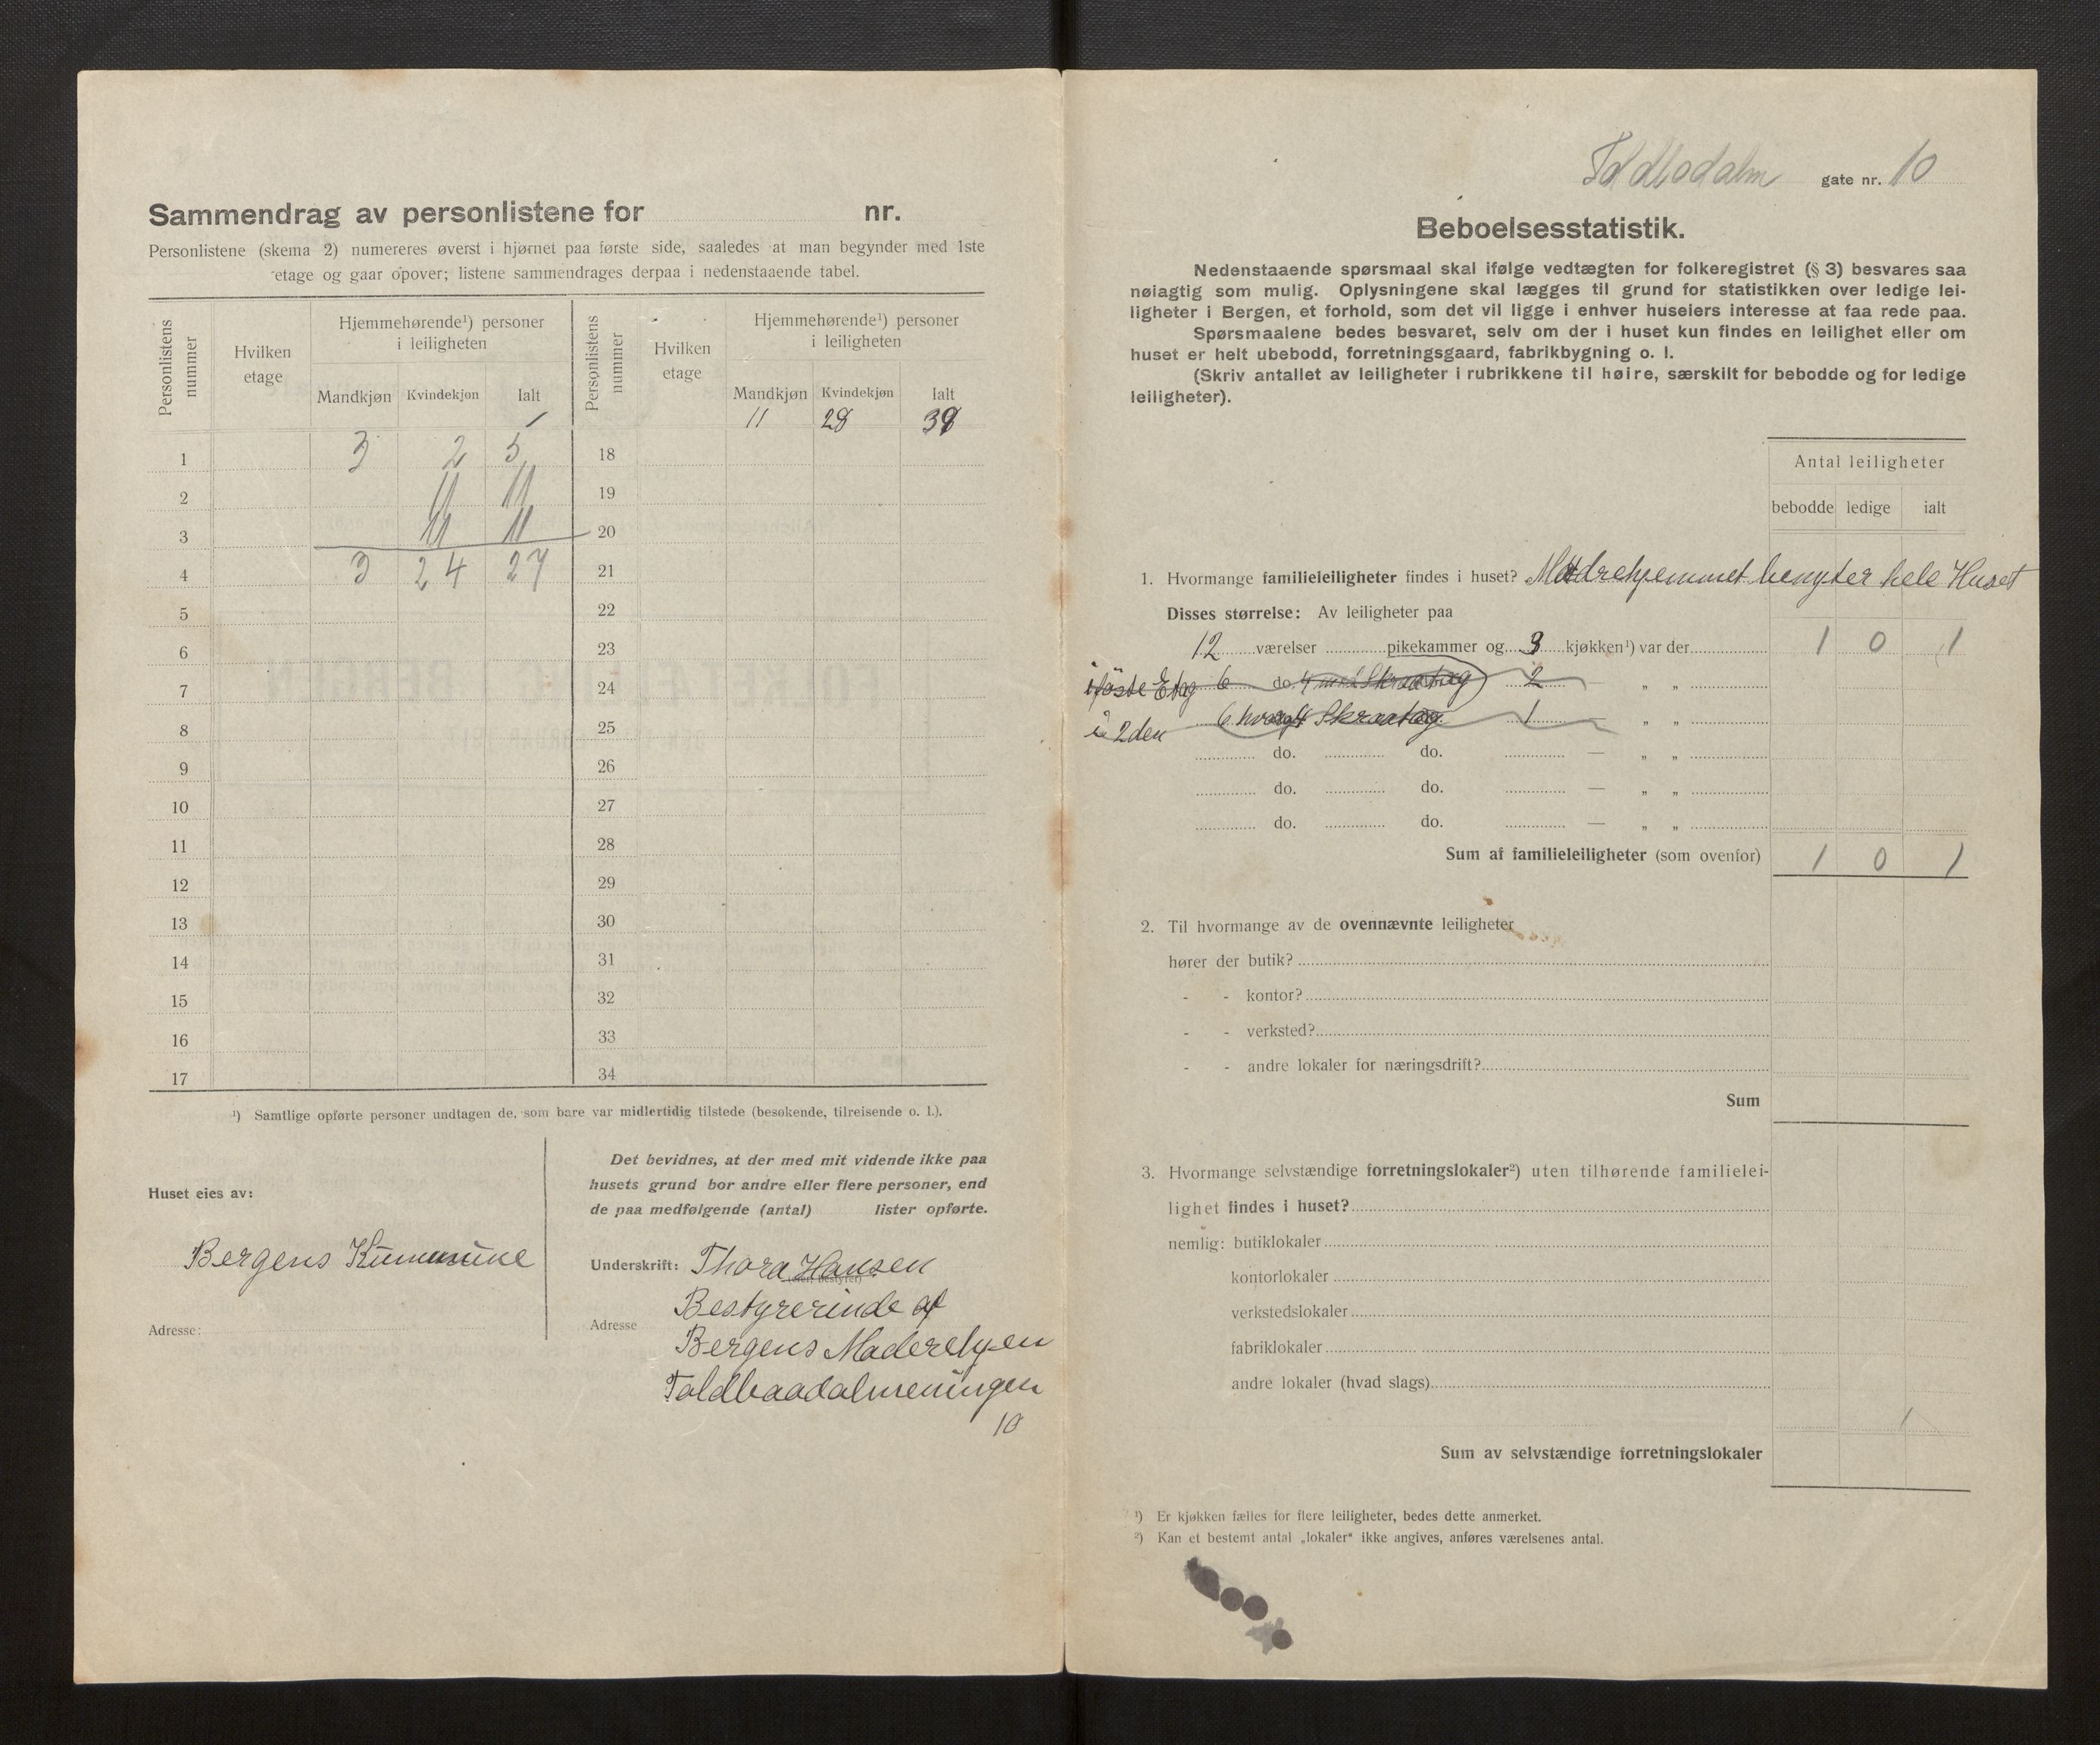 Sammendrag av personlistene for nr.
Personlistene (skema 2) numereres øverst i hjørnet paa første side, saaledes at man begynder med 1ste
etage og gaar opover; listene sammendrages derpaa i nedenstaaende tabel.
Personlistens nummer Hvilken etage Hjemmehørende¹) personer i leiligheten Personlistens nummer Hvilken etage Hjemmehørende¹) personer i leiligheten
Mandkjøn Kvindekjøn Ialt Mandkjøn Kvindekjøn Ialt
11 28 39
1 3 2 5 18
2 11 11 19
3 11 11 20
4 3 24 27 21
5 22
6 23
7 24
8 25
9 26
10 27
11 28
12 29
13 30
14 31
15 32
16 33
17 34
¹) Samtlige opførte personer undtagen de, som bare var midlertidig tilstede (besøkende, tilreisende o. l.).
Huset eies av:
Bergens Kummune
Adresse:
Det bevidnes, at der med mit vidende ikke paa
husets grund bor andre eller flere personer, end
de paa medfølgende (antal) lister opførte.
Underskrift: Thora Hansen
Bestyrerinde af
Adresse Bergens Møderehjen
Toldboadalmeningen
10
Toldbodalm gate nr. 10
Beboelsesstatistik.
Nedenstaaende spørsmaal skal ifølge vedtægten for folkeregistret (§ 3) besvares saa
nøiagtig som mulig. Oplysningene skal lægges til grund for statistikken over ledige lei-
ligheter i Bergen, et forhold, som det vil ligge i enhver huseiers interesse at faa rede paa.
Spørsmaalene bedes besvaret, selv om der i huset kun findes en leilighet eller om
huset er helt ubebodd, forretningsgaard, fabrikbygning o. l.
(Skriv antallet av leiligheter i rubrikkene til høire, særskilt for bebodde og for ledige
leiligheter).
Antal leiligheter
bebodde ledige ialt
1. Hvormange familieleiligheter findes i huset? Mødrehjemmet benyter hele Huset
Disses størrelse: Av leiligheter paa
12 værelser pikekammer og 3 kjøkken¹) var der 1 0 1
i föste Etag 6 do. 4 med Skraatag 2 „ „
i 2den 6 hvoraf 4 Skraatag 1 — „ „
do. do. — „ „
do. do. — „ „
do. do. — „ „
Sum af familieleiligheter (som ovenfor) 1 0 1
2. Til hvormange av de ovennævnte leiligheter
hører der butik?
- - kontor?
- - verksted?
- - andre lokaler for næringsdrift?
Sum
3. Hvormange selvstændige forretningslokaler²) uten tilhørende familielei-
lighet findes i huset?
nemlig: butiklokaler
kontorlokaler
verkstedslokaler
fabriklokaler
andre lokaler (hvad slags)
Sum av selvstændige forretningslokaler
¹) Er kjøkken fælles for flere leiligheter, bedes dette anmerket.
²) Kan et bestemt antal „lokaler“ ikke angives, anføres værelsenes antal.